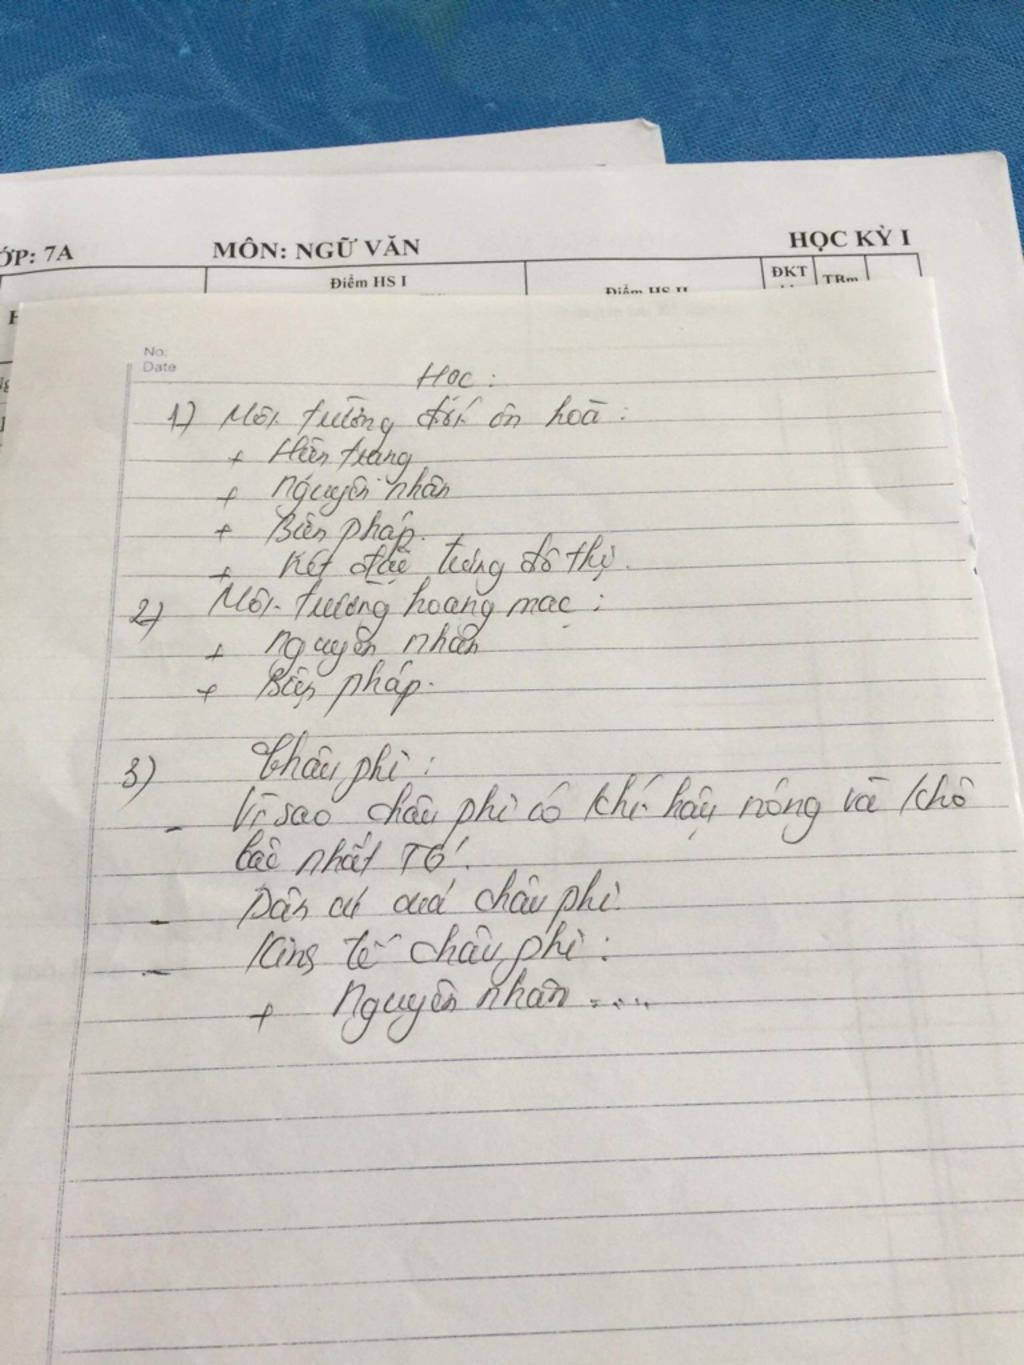 ỚP: 7A MÔN: NGỮ VĂN HỌC KỲ I
Điểm HS I Điểm HS II ĐKT TBm
No.
Date
Học :
1) Môi trường đới ôn hoà :
+ Hiện trạng
+ Nguyên nhân
+ Biện pháp.
+ Kết đặc trưng đô thị.
2) Môi trường hoang mạc :
+ Nguyên nhân
+ Biện pháp.
3) Châu phi :
- Vì sao châu phi có khí hậu nóng và khô
bậc nhất TG.
- Dân cư châu phi.
- Kinh tế châu phi :
+ Nguyên nhân ....